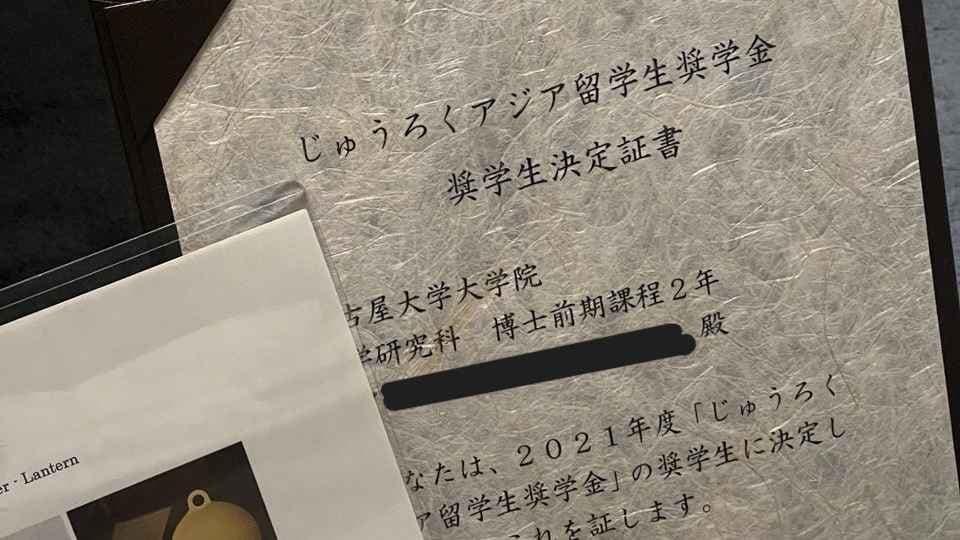 じゅうろくアジア留学生奨学金
奨学生決定証書
古屋大学大学院
学研究科　博士前期課程２年
殿
なたは、２０２１年度「じゅうろく
ア留学生奨学金」の奨学生に決定し
れを証します。
er · Lantern